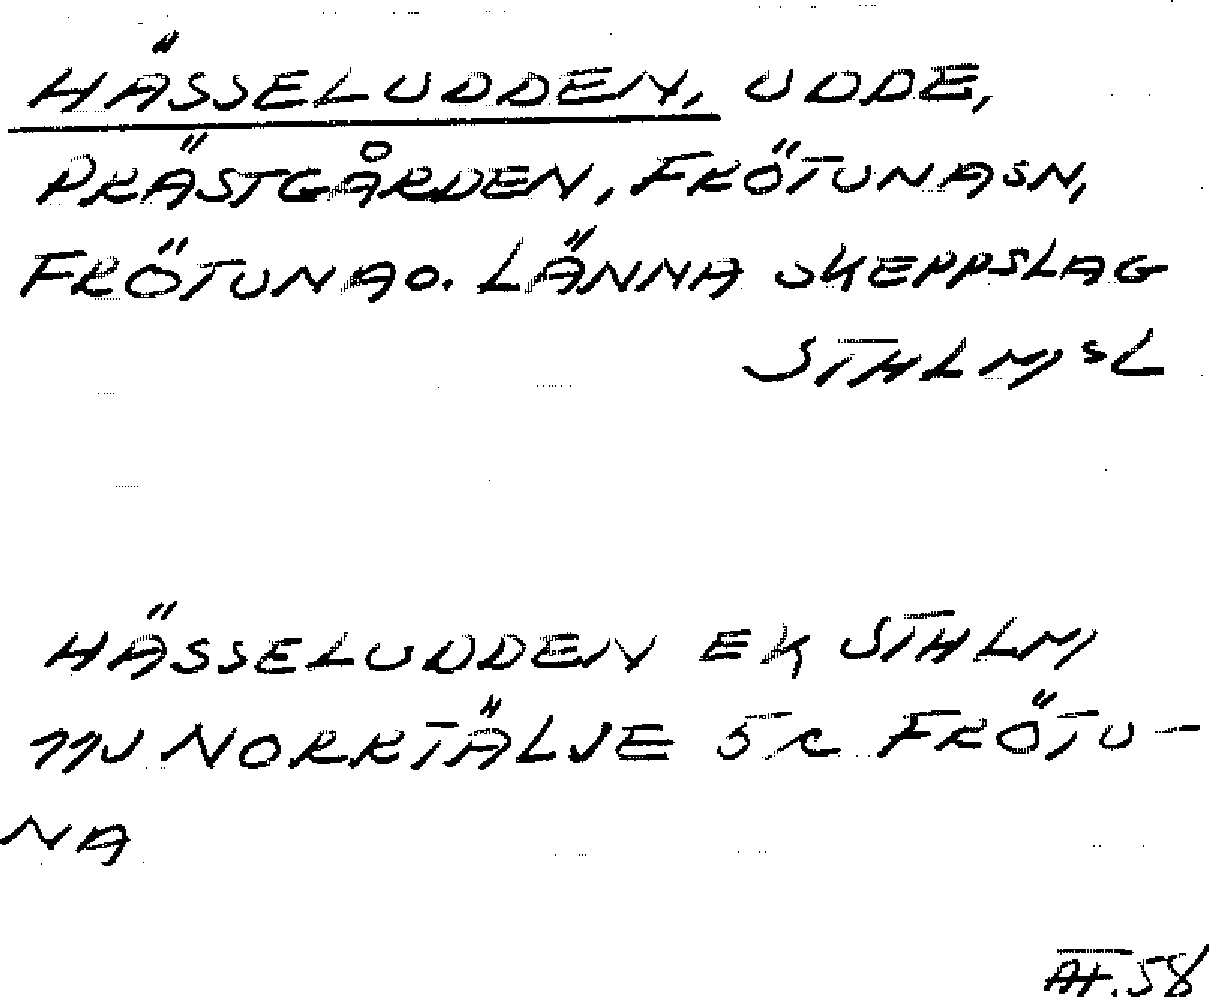 HÄSSELUDDEN, UDDE,
PRÄSTGÅRDEN, FRÖTUNA SN,
FRÖTUNA O. LÄNNA SKEPPSLAG
STHLMS L
HÄSSELUDDEN EK STHLM
11J NORRTÄLJE 5 c FRÖTU-
NA
AF. 58